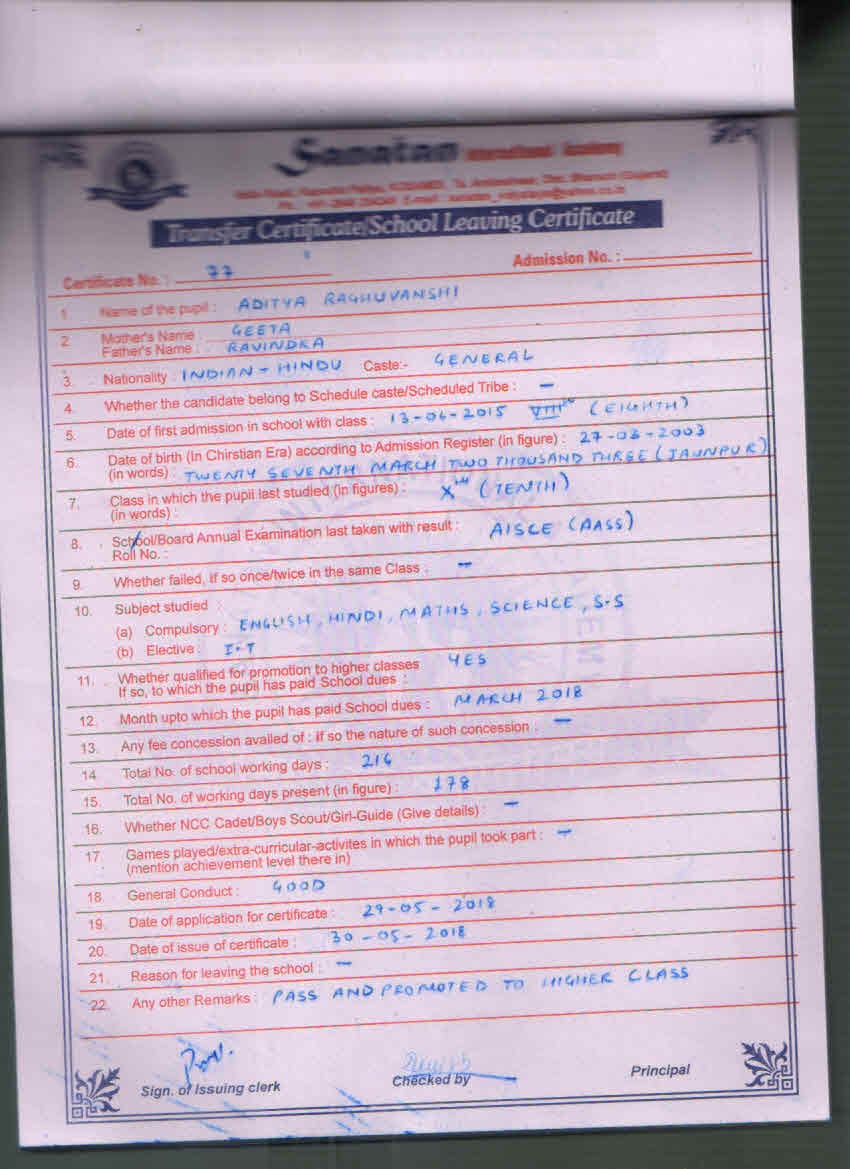 Sanatan International Academy
Transfer Certificate/School Leaving Certificate
Certificate No. : 77 Admission No. :
1 Name of the pupil : ADITYA RAGHUVANSHI
2 Mother's Name : GEETA
Father's Name : RAVINDRA
3. Nationality : INDIAN - HINDU Caste:- GENERAL
4. Whether the candidate belong to Schedule caste/Scheduled Tribe : -
5. Date of first admission in school with class : 13-04-2015 VIIIth (EIGHTH)
6. Date of birth (In Chirstian Era) according to Admission Register (in figure) : 27-03-2003
(in words) : TWENTY SEVENTH MARCH TWO THOUSAND THREE (JAUNPUR)
7. Class in which the pupil last studied (in figures) : Xth (TENTH)
(in words) :
8. School/Board Annual Examination last taken with result : AISCE (PASS)
Roll No. :
9. Whether failed, if so once/twice in the same Class : -
10. Subject studied :
(a) Compulsory : ENGLISH, HINDI, MATHS, SCIENCE, S.S
(b) Elective : I.T
11. Whether qualified for promotion to higher classes YES
If so, to which the pupil has paid School dues :
12. Month upto which the pupil has paid School dues : MARCH 2018
13. Any fee concession availed of : if so the nature of such concession : -
14. Total No. of school working days : 216
15. Total No. of working days present (in figure) : 178
16. Whether NCC Cadet/Boys Scout/Girl-Guide (Give details) : -
17. Games played/extra-curricular-activites in which the pupil took part : -
(mention achievement level there in)
18. General Conduct : GOOD
19. Date of application for certificate : 29-05-2018
20. Date of issue of certificate : 30-05-2018
21. Reason for leaving the school : -
22. Any other Remarks : PASS AND PROMOTED TO HIGHER CLASS
Sign. of Issuing clerk Checked by Principal